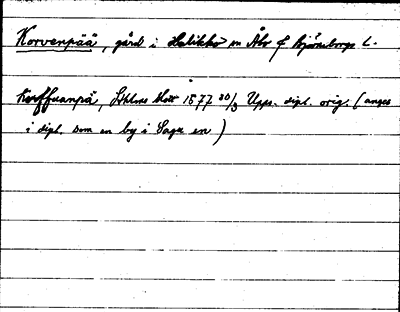 Korvenpää, gård i Halikko sn Åbo o Björneborgs l.
Korffuanpä, Sthlms slott 1577 30/3 Upps. dipl. orig. (anges
i dipl. som en by i Sagu sn)